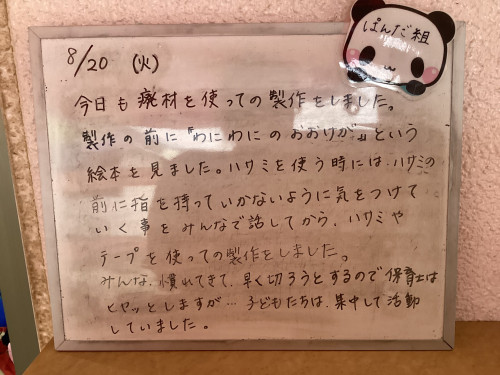 ぱんだ組
8/20 (火)
今日も廃材を使っての製作をしました。
製作の前に『わにわにのおおけが』という
絵本を見ました。ハサミを使う時には、ハサミの
前に指を持っていかないように気をつけて
いく事をみんなで話してから、ハサミや
テープを使っての製作をしました。
みんな、慣れてきて、早く切ろうとするので保育士は
ヒヤッとしますが… 子どもたちは、集中して活動
していました。